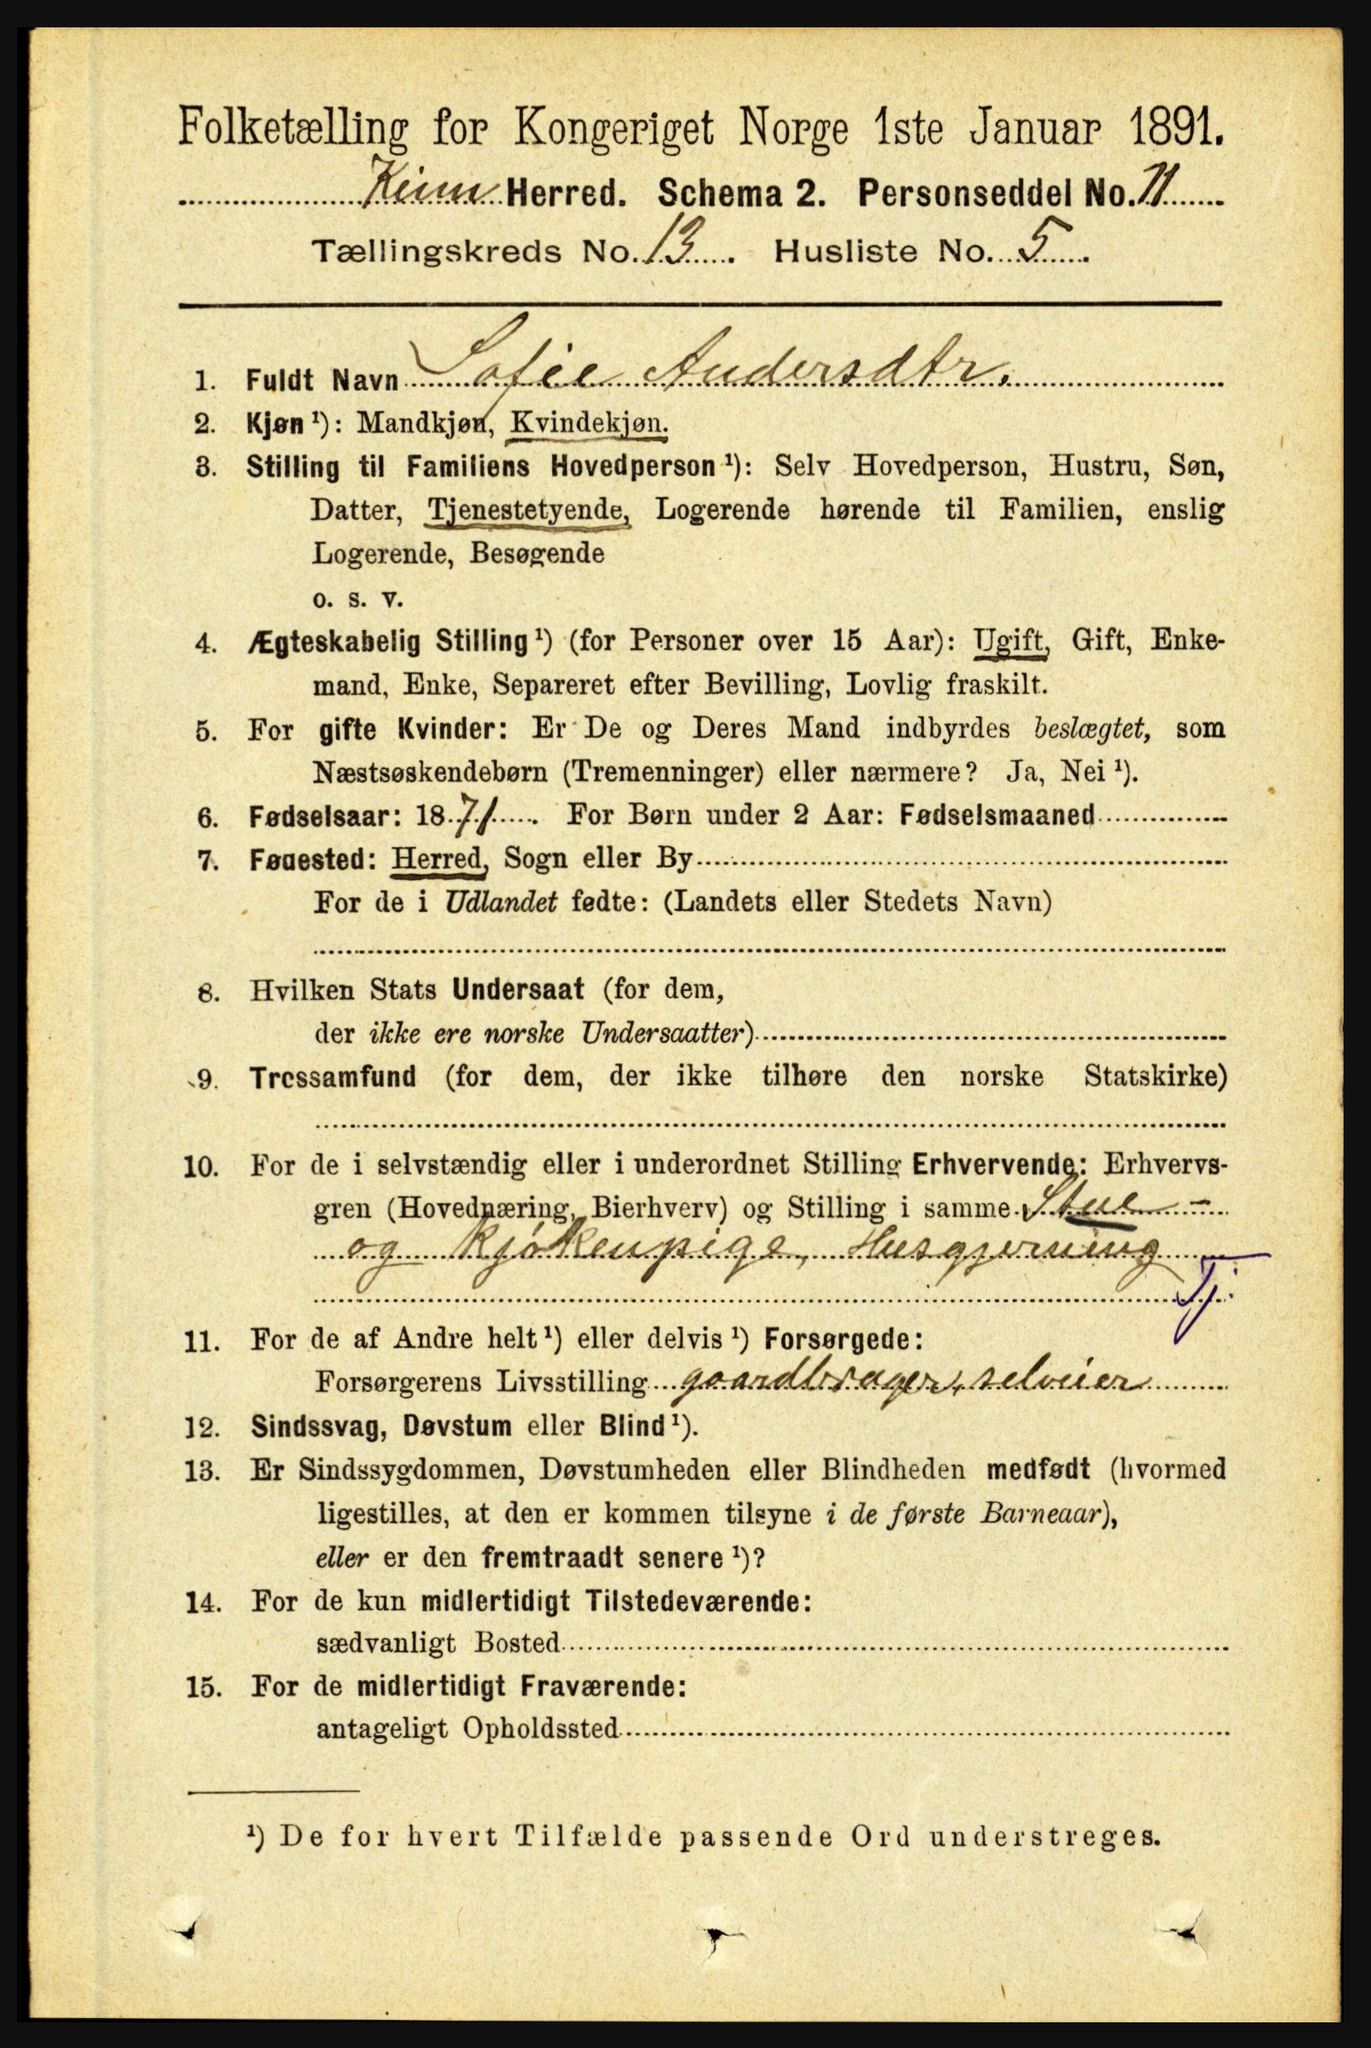 Folketælling for Kongeriget Norge 1ste Januar 1891.
Kinn Herred. Schema 2. Personseddel No. 11
Tællingskreds No. 13. Husliste No. 5.
1. Fuldt Navn Sofie Andersdtr.
2. Kjøn ¹): Mandkjøn, Kvindekjøn.
3. Stilling til Familiens Hovedperson ¹): Selv Hovedperson, Hustru, Søn,
Datter, Tjenestetyende, Logerende hørende til Familien, enslig
Logerende, Besøgende
o. s. v.
4. Ægteskabelig Stilling ¹) (for Personer over 15 Aar): Ugift, Gift, Enke-
mand, Enke, Separeret efter Bevilling, Lovlig fraskilt.
5. For gifte Kvinder: Er De og Deres Mand indbyrdes beslægtet, som
Næstsøskendebørn (Tremenninger) eller nærmere? Ja, Nei ¹).
6. Fødselsaar: 1871. For Børn under 2 Aar: Fødselsmaaned
7. Fødested: Herred, Sogn eller By
For de i Udlandet fødte: (Landets eller Stedets Navn)
8. Hvilken Stats Undersaat (for dem,
der ikke ere norske Undersaatter)
9. Trossamfund (for dem, der ikke tilhøre den norske Statskirke)
10. For de i selvstændig eller i underordnet Stilling Erhvervende: Erhvervs-
gren (Hovednæring, Bierhverv) og Stilling i samme Stue-
og kjøkenpige, Husgjerning
Tj.
11. For de af Andre helt ¹) eller delvis ¹) Forsørgede:
Forsørgerens Livsstilling gaardbruger, selveier
12. Sindssvag, Døvstum eller Blind ¹).
13. Er Sindssygdommen, Døvstumheden eller Blindheden medfødt (hvormed
ligestilles, at den er kommen tilsyne i de første Barneaar),
eller er den fremtraadt senere ¹)?
14. For de kun midlertidigt Tilstedeværende:
sædvanligt Bosted
15. For de midlertidigt Fraværende:
antageligt Opholdssted
¹) De for hvert Tilfælde passende Ord understreges.